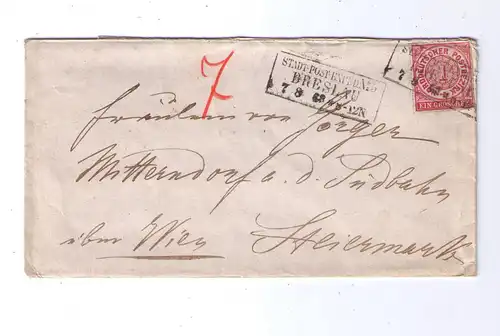 7
STADT-POST-EXPED. No
BRESLAU
7 8 68 -12N
NORDDEUTSCHER POSTBEZIRK
1
EIN GROSCHEN
7 8
Fräulein von Jorger
Mitterndorf a. d. Südbahn
über Wien Steiermark